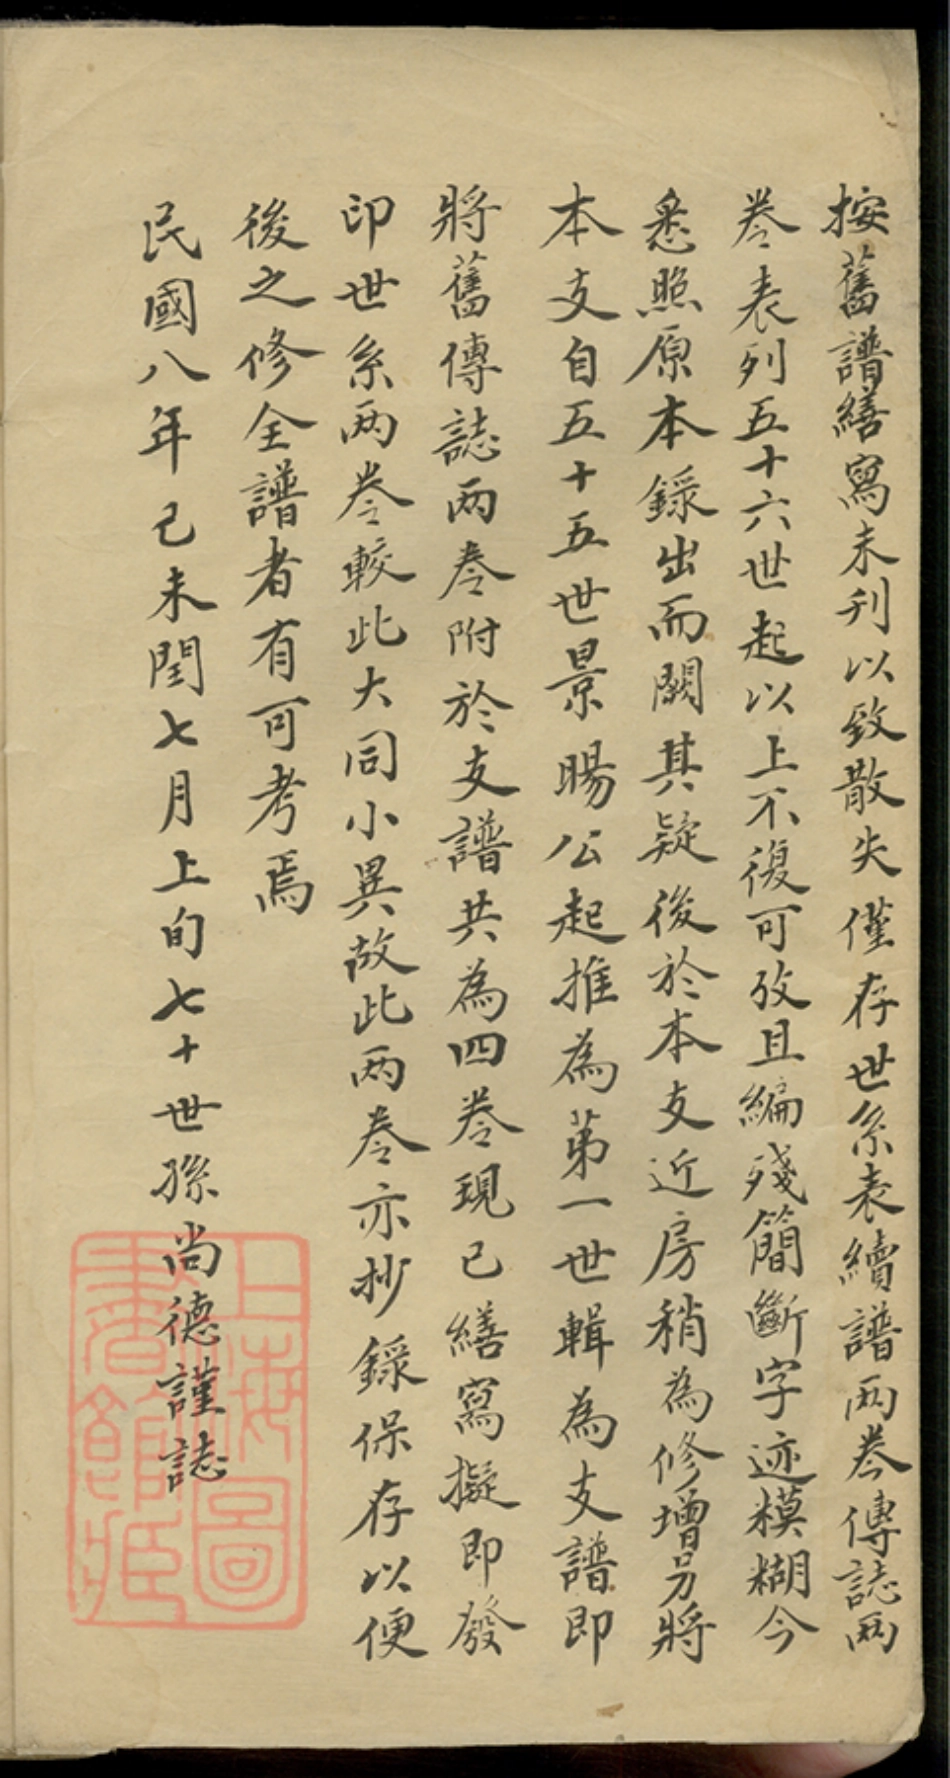 按舊譜繕寫未刋以致散失僅存世系表續譜两卷傳誌两
卷表列五十六世起以上不復可攷且編殘簡斷字迹模糊今
悉照原本錄出而闕其疑後於本支近房稍為修增另將
本支自五十五世景暘公起推為第一世輯為支譜即
將舊傳誌两卷附於支譜共為四卷現已繕寫擬即發
印世系两卷較此大同小異故此两卷亦抄錄保存以便
後之修全譜者有可考焉
民國八年己未閏七月上旬七十世孫尚德謹誌
上海圖
書館藏